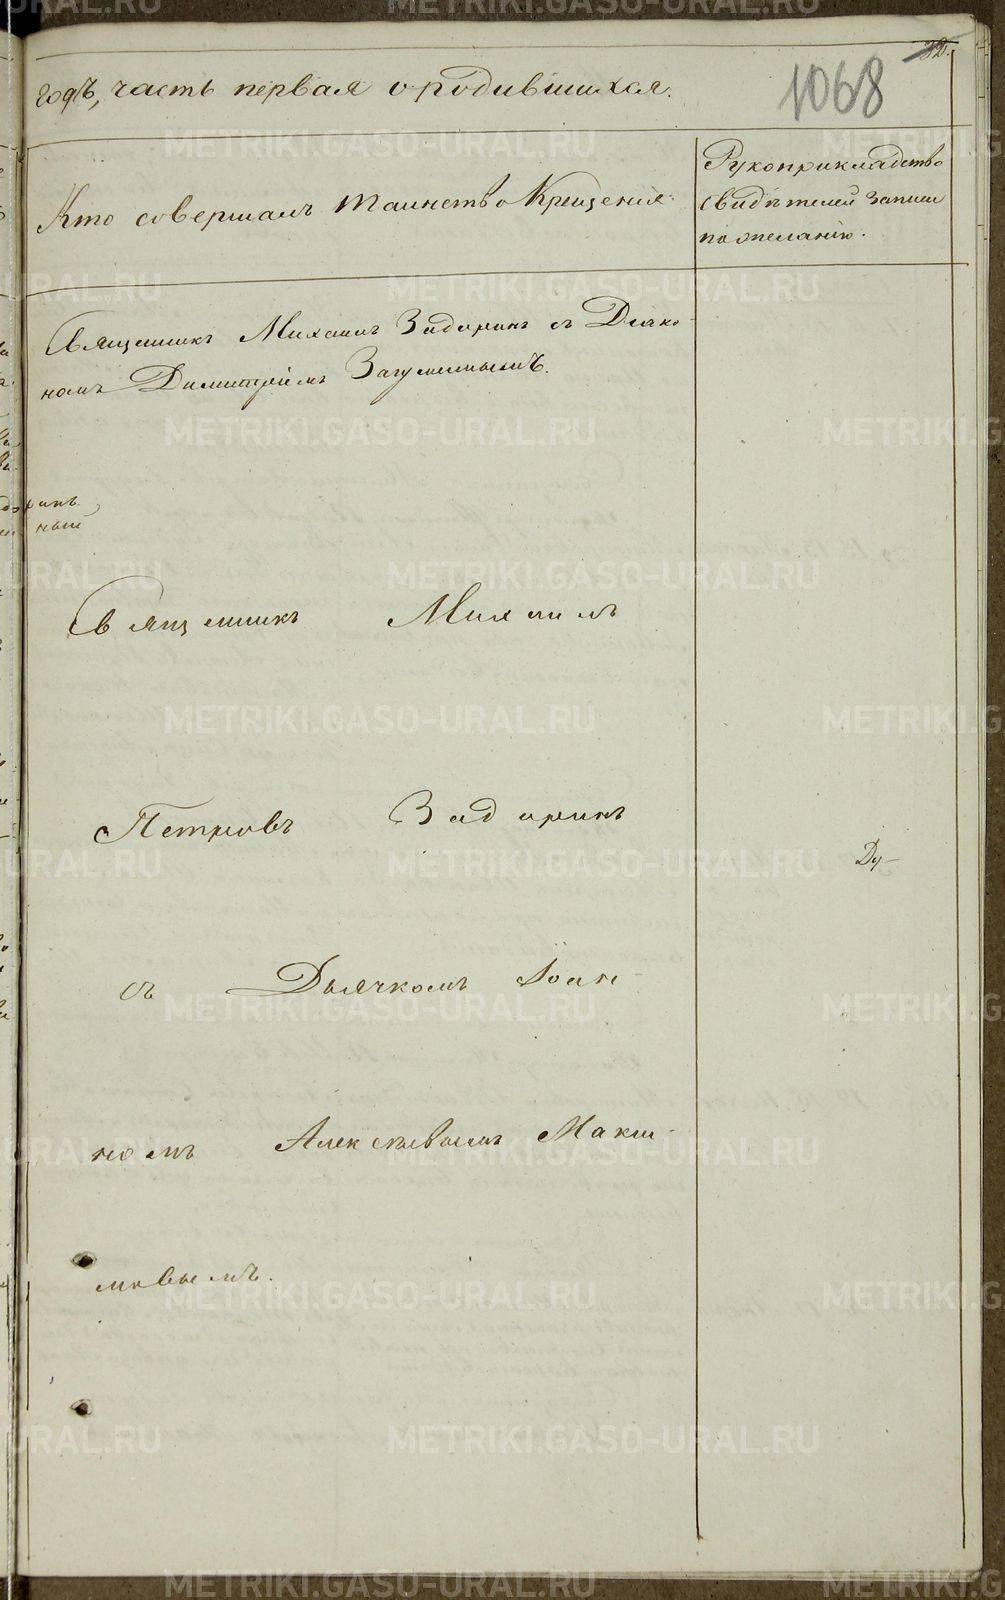 32.
1068
годъ, часть первая о родившихся.
Кто совершалъ таинство Крещенія.
Рукоприкладство
свидѣтелей записи
по желанію.
Священникъ Михаилъ Задоринъ съ Діако-
номъ Димитріемъ Загуменнымъ.
Священникъ Михаилъ
Петровъ Задоринъ
Ду-
съ Дьячкомъ Іоан-
номъ Алексѣевымъ Макси-
мовымъ.
METRIKI.GASO-URAL.RU